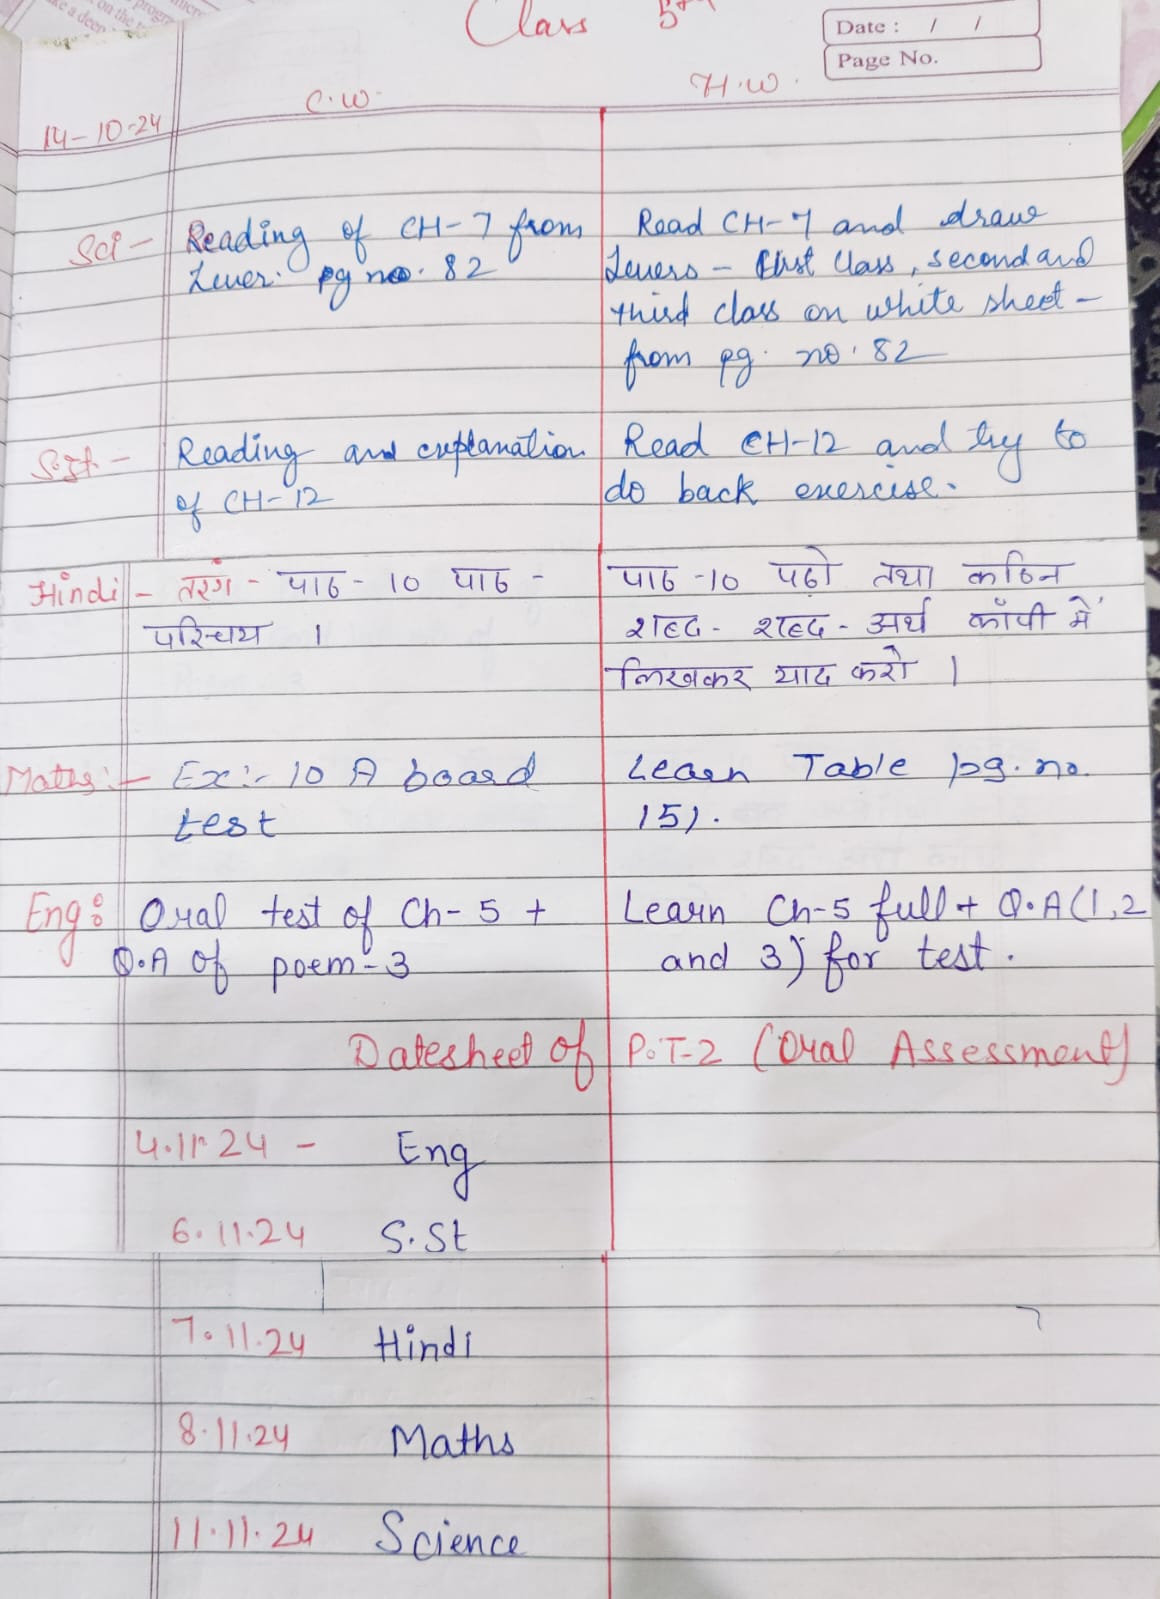 Class 5th
Date : / /
Page No.
C.W. H.W.
14-10-24
Sci - Reading of CH-7 from
Lever. pg no. 82
Read CH-7 and draw
Levers - First Class, second and
third class on white sheet -
from pg. no. 82
S.St. - Reading and explanation
of CH-12
Read CH-12 and try to
do back exercise.
Hindi - तरंग - पाठ - 10 पाठ -
परिचय ।
पाठ -10 पढ़ो तथा कठिन
शब्द - शब्द - अर्थ कॉपी में
लिखकर याद करो ।
Maths:- Ex:- 10 A board
test
Learn Table pg. no.
151.
Eng: Oral test of Ch- 5 +
Q.A of poem-3
Learn Ch-5 full + Q.A (1,2
and 3) for test.
Datesheet of P.T-2 (Oral Assessment)
4.11.24 - Eng
6.11.24 S.St
7.11.24 Hindi
8.11.24 Maths
11.11.24 Science